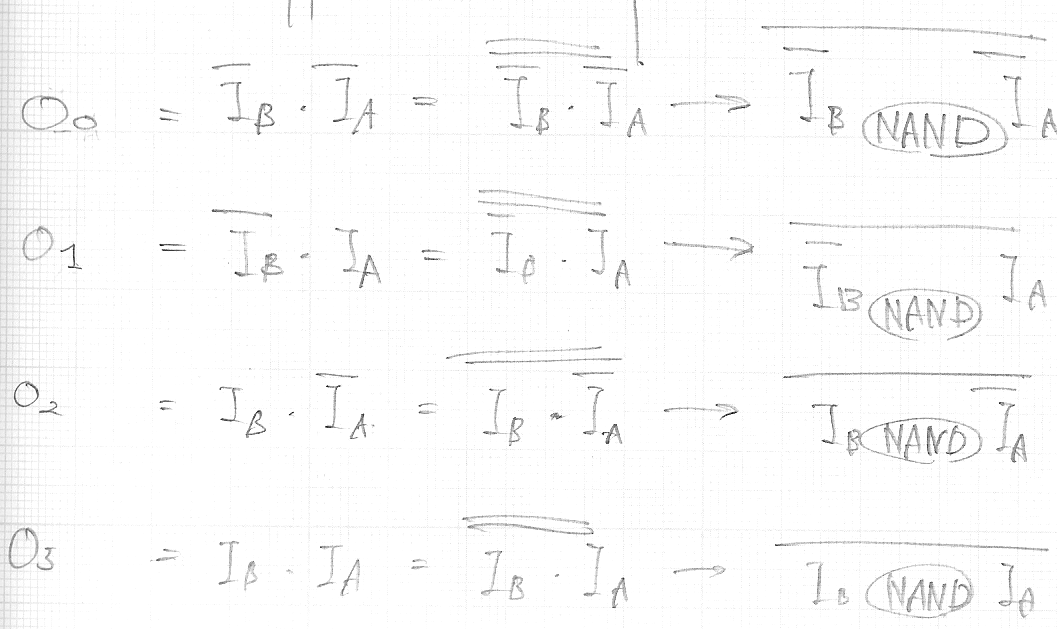 O₀ = I̅_B · I̅_A = \overline{\overline{I̅_B · I̅_A}} → \overline{I̅_B NAND I̅_A}
O₁ = I̅_B · I_A = \overline{\overline{I̅_B · I_A}} → \overline{I̅_B NAND I_A}
O₂ = I_B · I̅_A = \overline{\overline{I_B · I̅_A}} → \overline{I_B NAND I̅_A}
O₃ = I_B · I_A = \overline{\overline{I_B · I_A}} → \overline{I_B NAND I_A}